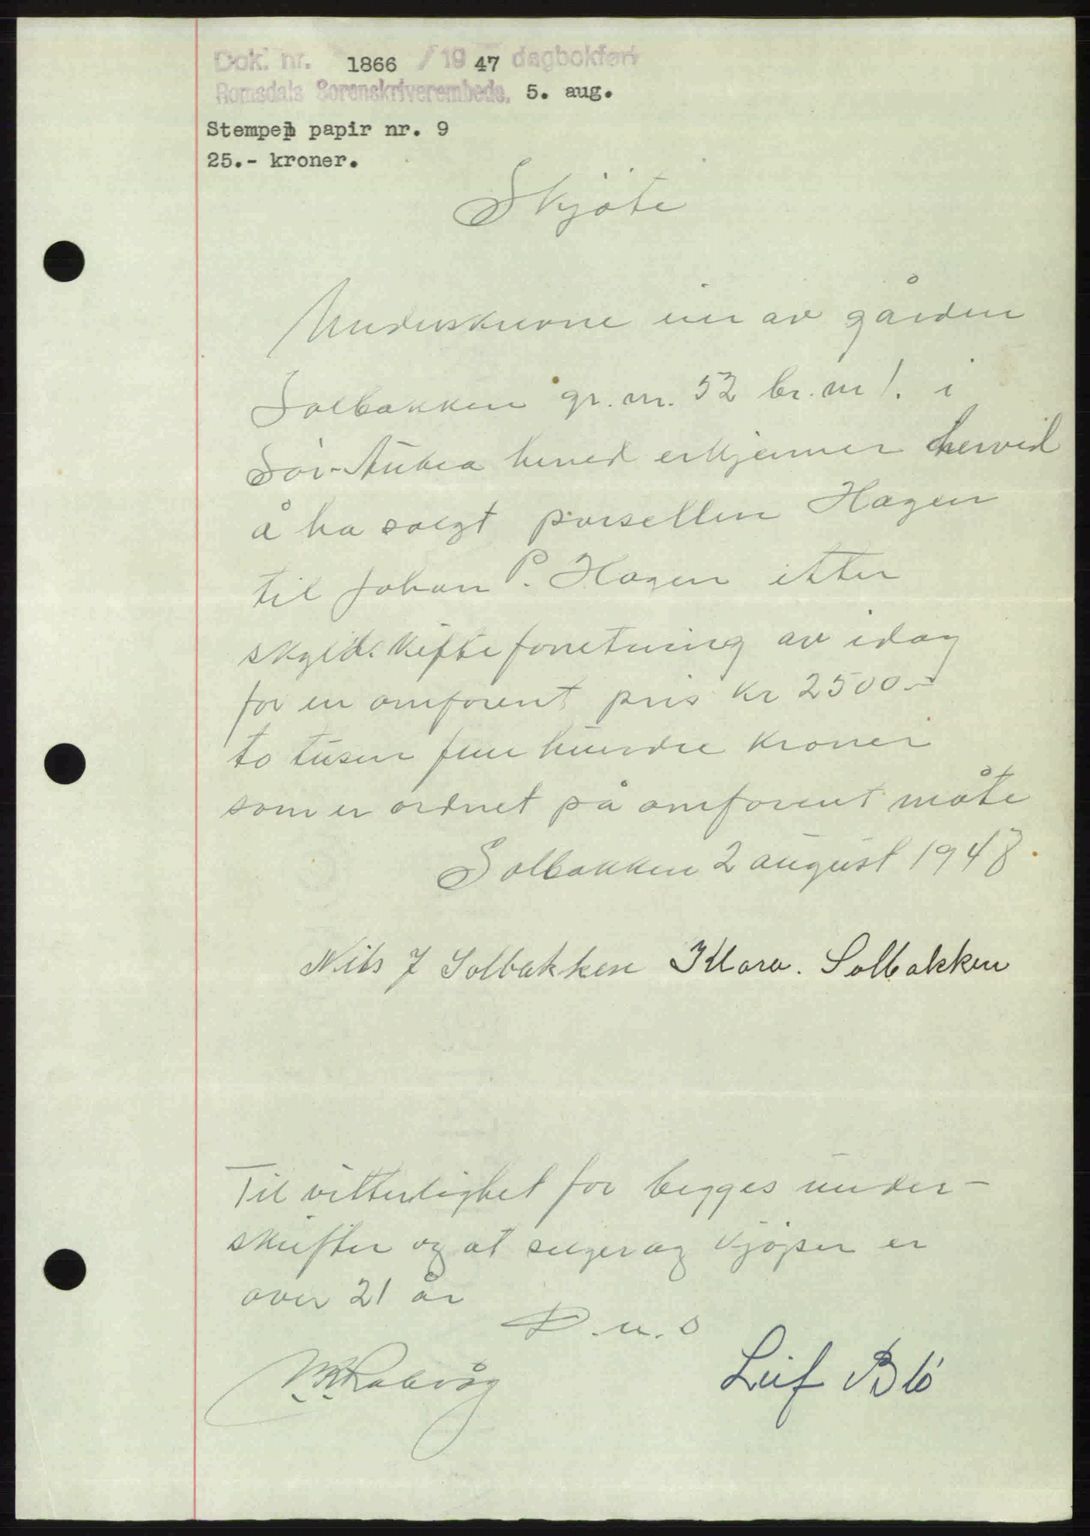 Dok. nr. 1866 / 19 47 dagbokført
Romsdals Sorenskriverembede, 5. aug.
Stempel papir nr. 9
25.- kroner.
Skjøte
Underskrevne eier av gården
Solbakken gr. nr. 52 br. nr 1. i
Sør-Aukra herved erkjenner herved
å ha solgt parsellen Hagen
til Johan P. Hagen etter
skyldskifteforretning av idag
for en omforent pris kr 2500.-
to tusen fem hundre kroner
som er ordnet på omforent måte
Solbakken 2 august 1948
Nils J Solbakken Klara. Solbakken
Til vitterlighet for begges under-
skrifter og at selger og kjøper er
over 21 år
D.u.s
Leif Blø